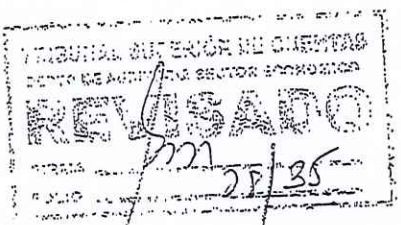 TRIBUNAL SUPERIOR DE CUENTAS
DEPTO DE AUDITORIA SECTOR ECONOMICO
REVISADO
FIRMA
FOLIO 35